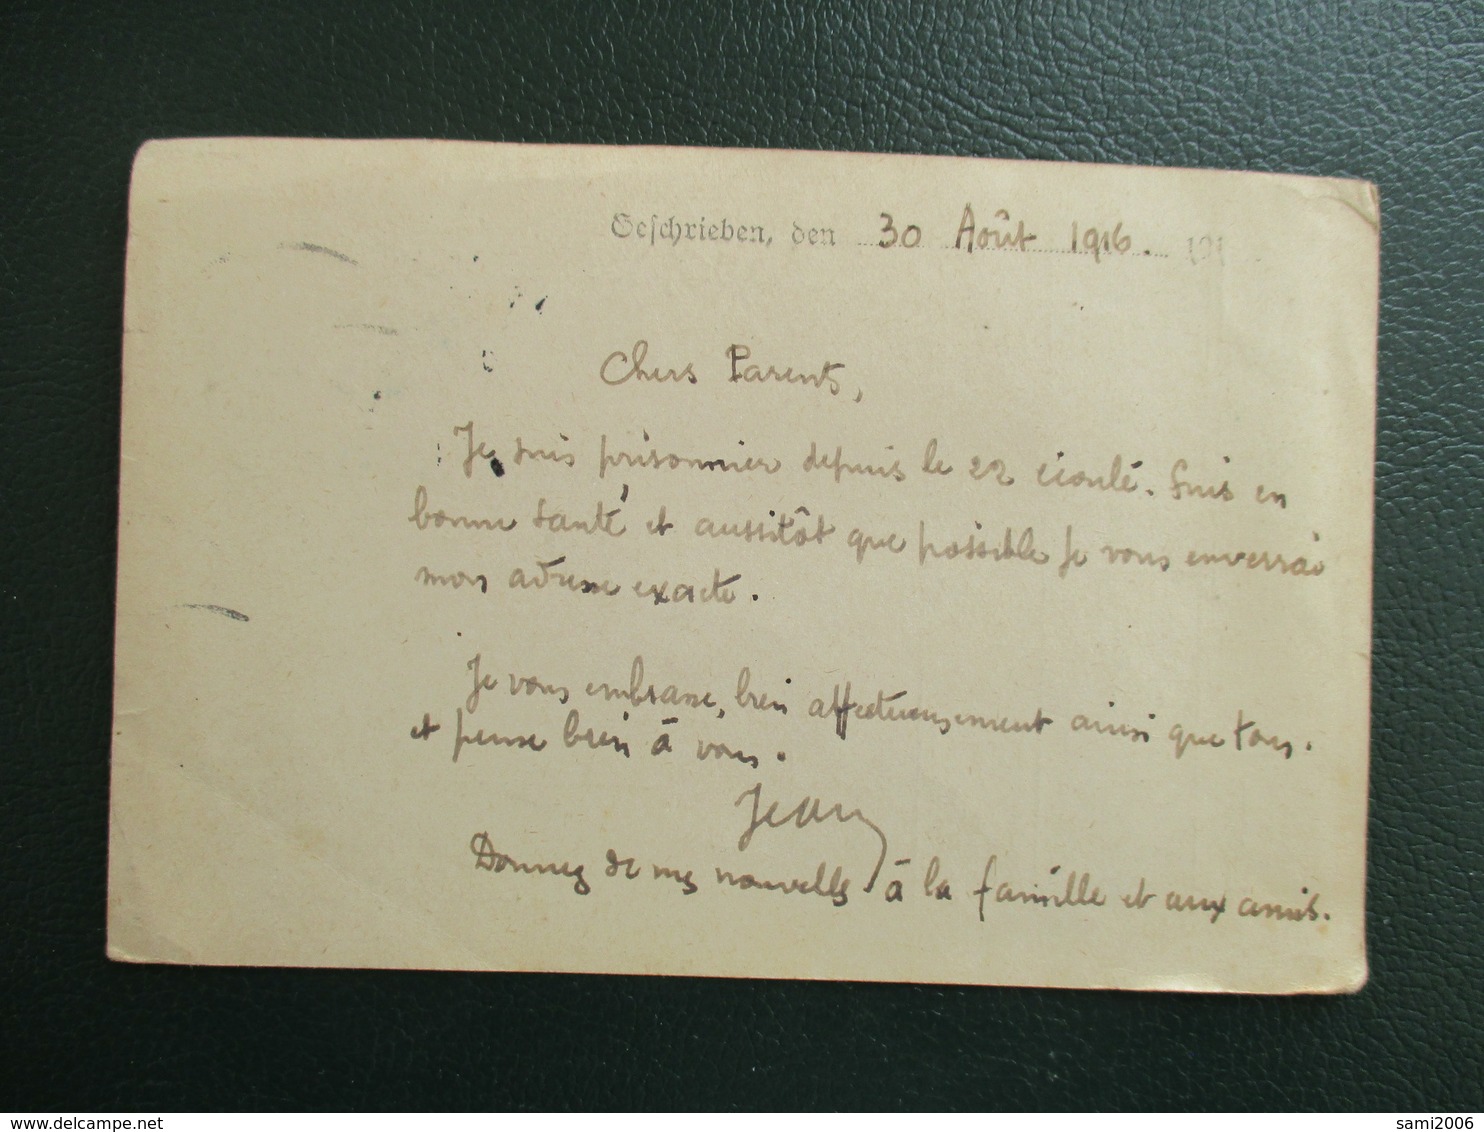 Geschrieben, den 30 Août 1916. 191
Chers Parents,
Je suis prisonnier depuis le 22 écoulé. Suis en
bonne santé et aussitôt que possible je vous enverrai
mon adresse exacte.
Je vous embrasse, bien affectueusement ainsi que tous.
et pense bien à vous.
Jean
Donnez de mes nouvelles à la famille et aux amis.
sami2006